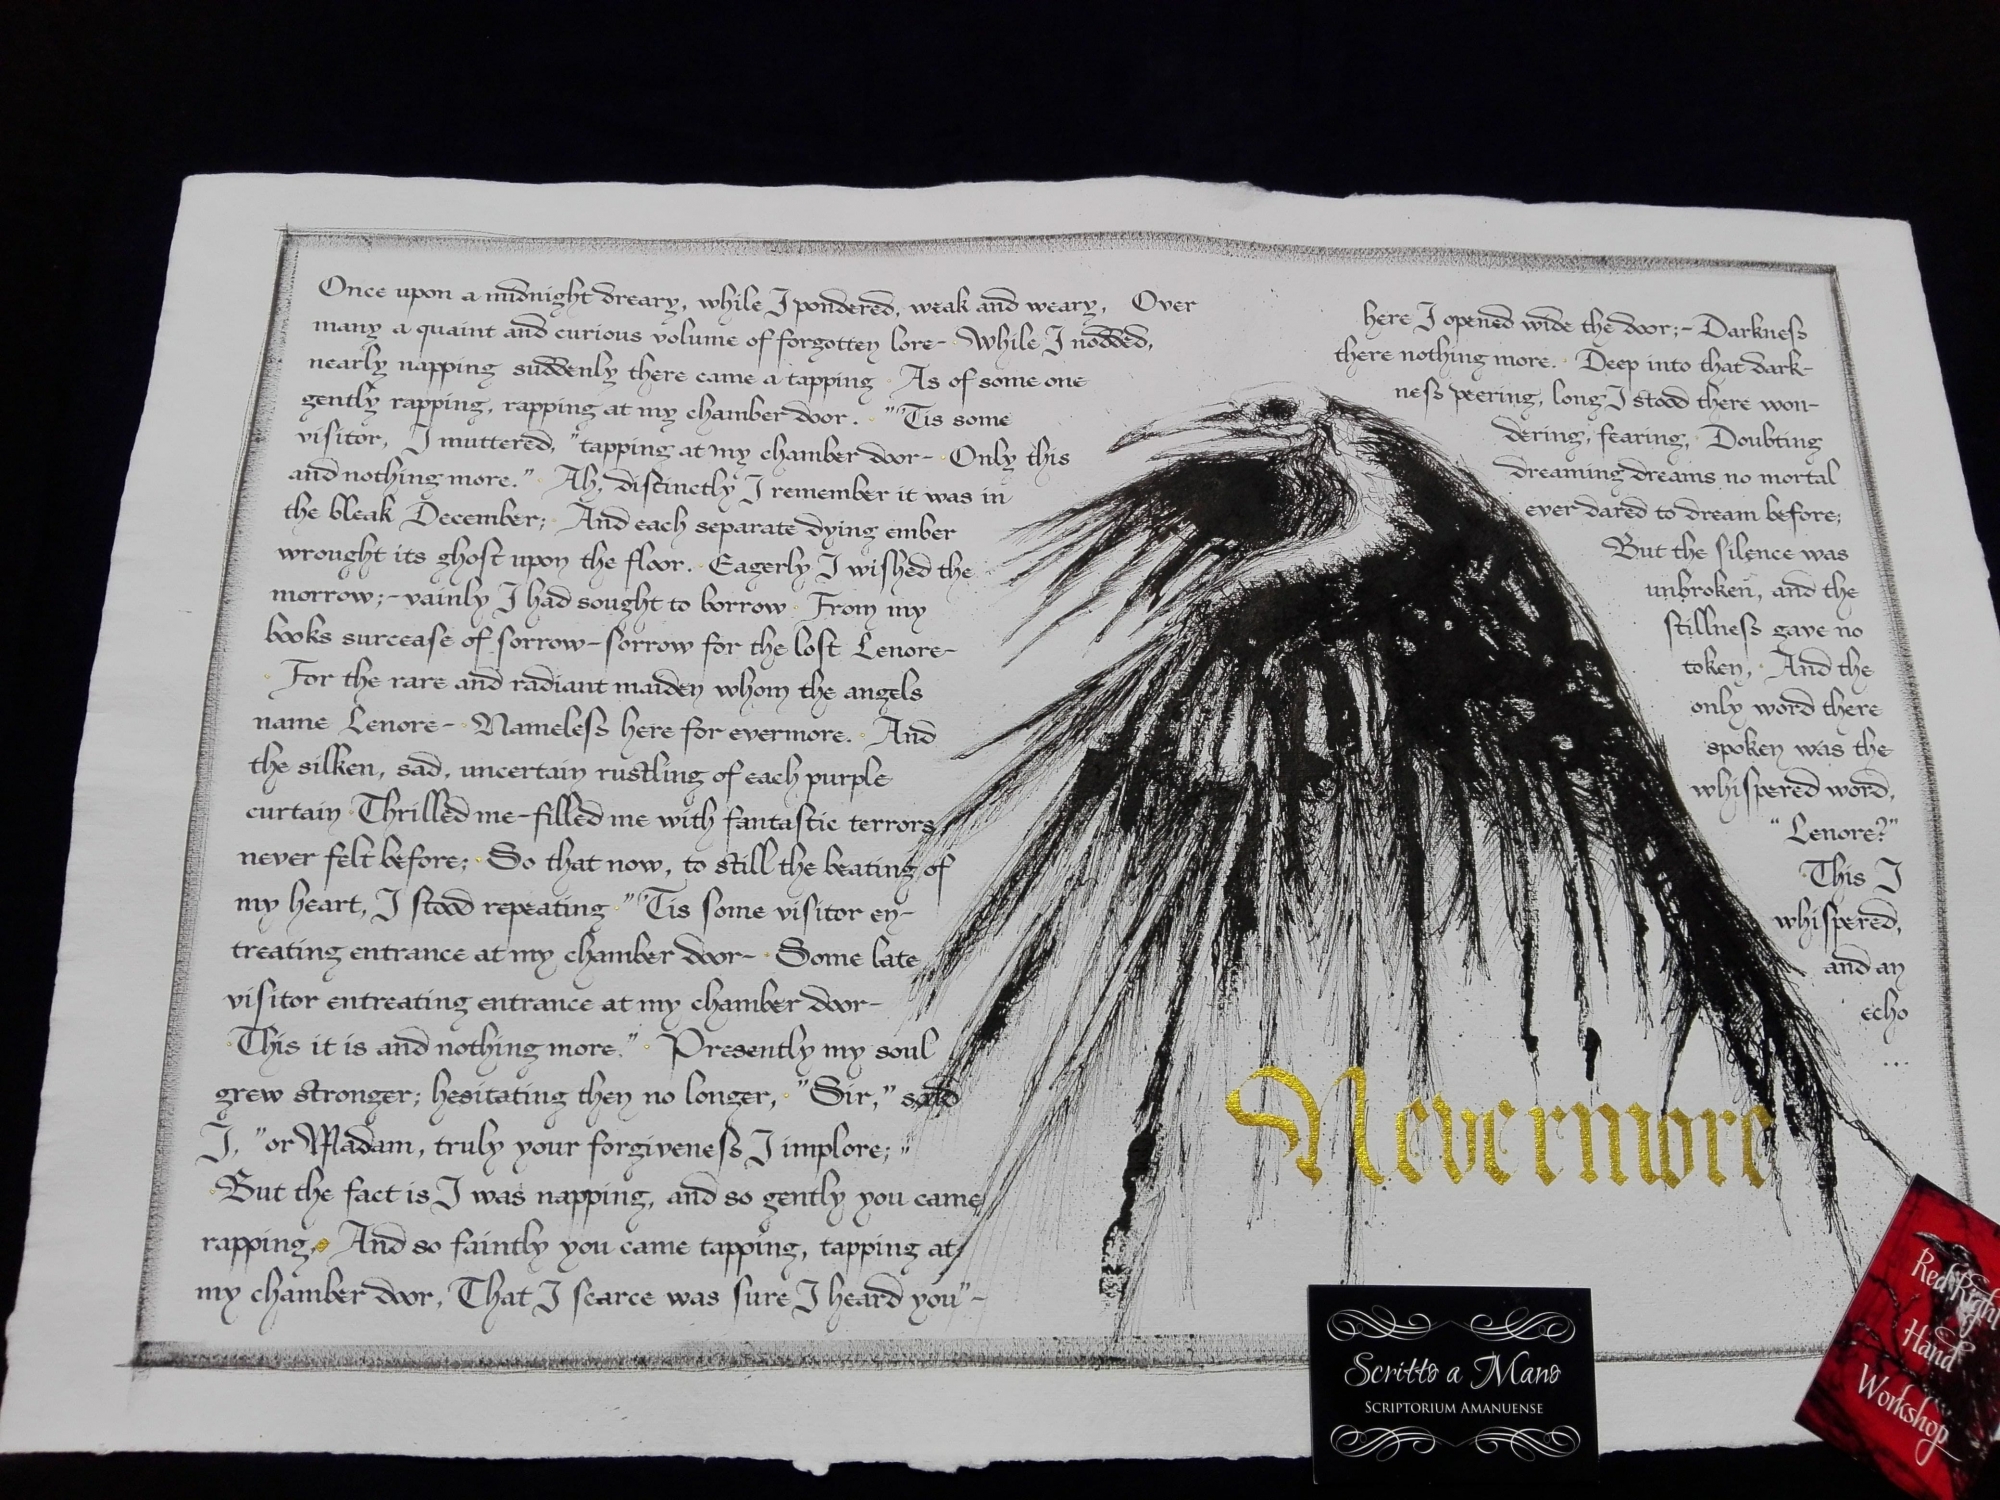 Once upon a midnight dreary, while I pondered, weak and weary, Over
many a quaint and curious volume of forgotten lore- While I nodded,
nearly napping suddenly there came a tapping As of some one
gently rapping, rapping at my chamber door. "'Tis some
visitor, I muttered, "tapping at my chamber door- Only this
and nothing more." Ah, distinctly I remember it was in
the bleak December; And each separate dying ember
wrought its ghost upon the floor. Eagerly I wished the
morrow;-vainly I had sought to borrow From my
books surcease of sorrow-sorrow for the lost Lenore-
For the rare and radiant maiden whom the angels
name Lenore- Nameless here for evermore. And
the silken, sad, uncertain rustling of each purple
curtain Thrilled me-filled me with fantastic terrors
never felt before; So that now, to still the beating of
my heart, I stood repeating "'Tis some visitor en-
treating entrance at my chamber door- Some late
visitor entreating entrance at my chamber door-
This it is and nothing more." Presently my soul
grew stronger; hesitating then no longer, "Sir," said
I, "or Madam, truly your forgiveness I implore; "
But the fact is I was napping, and so gently you came
rapping, And so faintly you came tapping, tapping at
my chamber door, That I scarce was sure I heard you"-
here I opened wide the door;- Darkness
there nothing more. Deep into that dark-
ness peering, long I stood there won-
dering, fearing, Doubting
dreaming dreams no mortal
ever dared to dream before;
But the silence was
unbroken, and the
stillness gave no
token, And the
only word there
spoken was the
whispered word,
"Lenore?"
This I
whispered,
and an
echo
...
Nevermore
Scritto a Mano
SCRIPTORIUM AMANUENSE
Red Right
Hand
Workshop